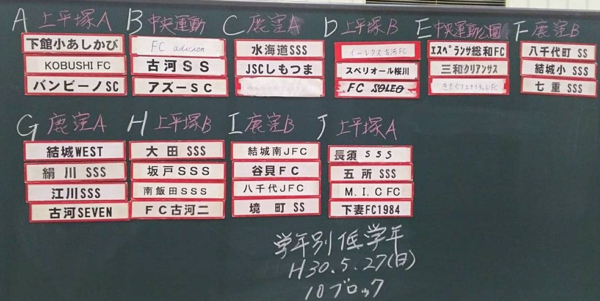 A 上平塚A
下館小あしかび
KOBUSHI FC
バンビーノSC
B 中央運動
FC advison
古河SS
アズーSC
C 鹿窪A
水海道SSS
JSCしもつま
D 上平塚B
スペリオール桜川
FC SOLEO
E 中央運動公園
エスペランサ総和FC
三和クリアンサス
F 鹿窪B
八千代町SS
結城小SSS
七重SSS
G 鹿窪A
結城WEST
絹川SSS
江川SSS
古河SEVEN
H 上平塚B
大田SSS
坂戸SSS
南飯田SSS
FC古河二
I 鹿窪B
結城南JFC
谷貝FC
八千代JFC
境町SS
J 上平塚A
長須SSS
五所SSS
M.I.CFC
下妻FC1984
学年別低学年
H30.5.27(日)
10ブロック